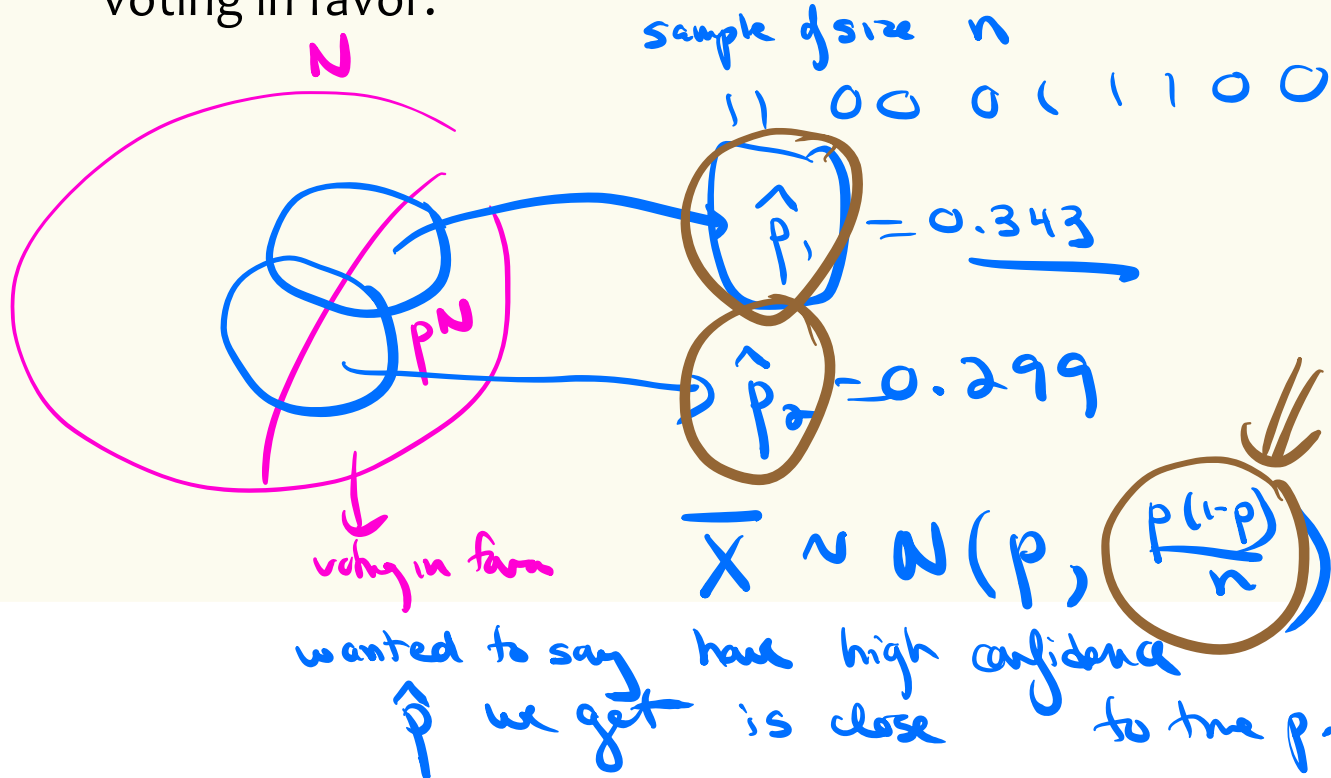 voting in favor.
N
sample of size n
11 00 0 1 1 1 0 0
p̂₁ = 0.343
pN
p̂₂ = 0.299
X̄ ~ N(p, p(1-p)/n)
voting in favor
wanted to say have high confidence
p̂ we get is close to true p.